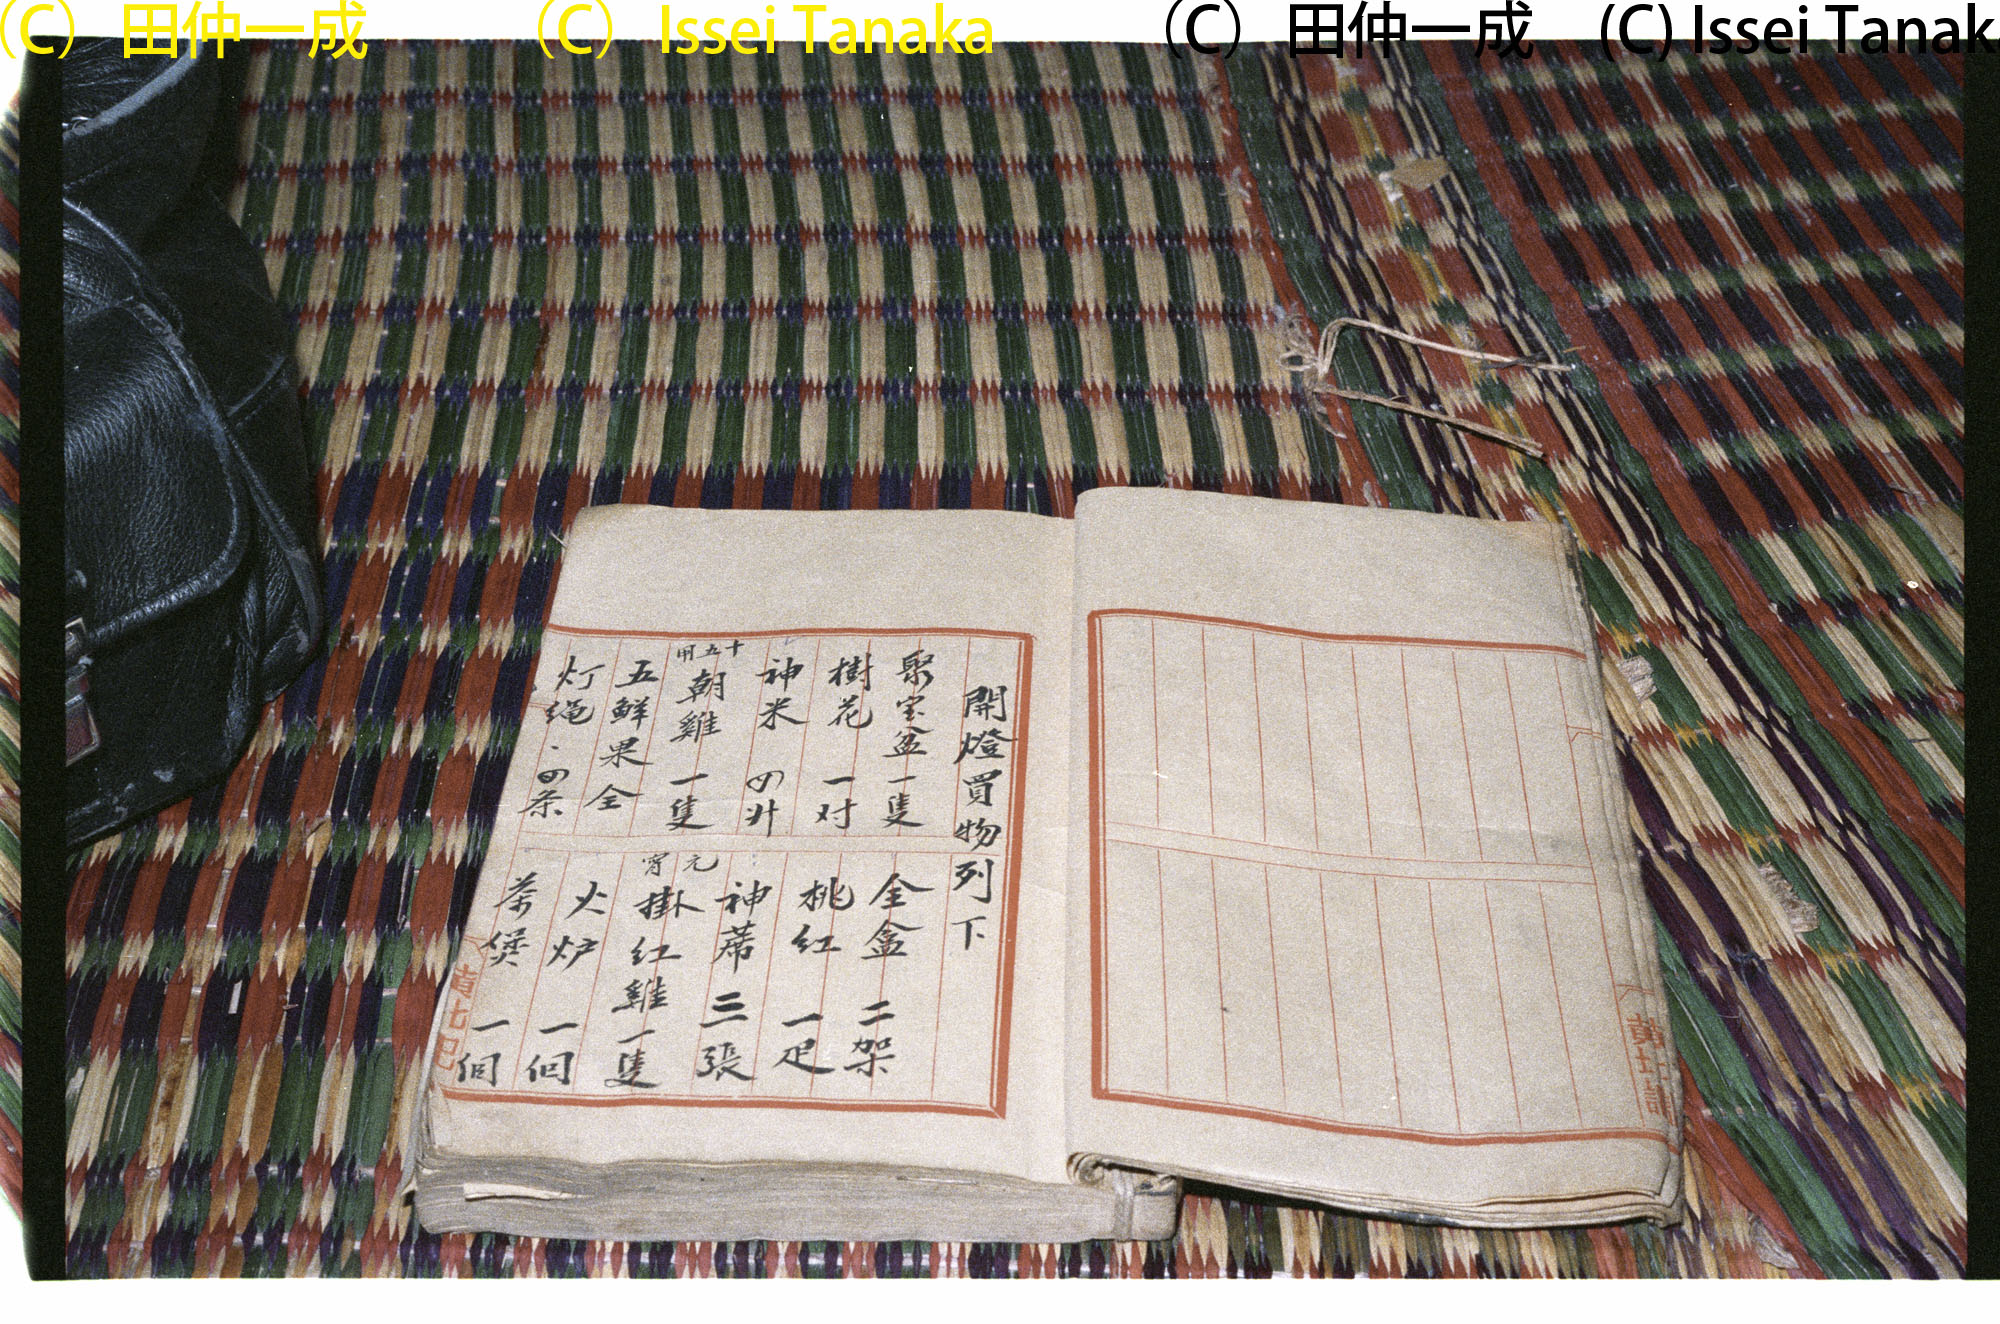 (C) 田仲一成 (C) Issei Tanaka (C) 田仲一成 (C) Issei Tanaka
開燈買物列下
聚宝盆一隻
全盒二架
樹花一对
桃红一疋
神米四升
神蓆三張
十五用
朝雞一隻
元宵
掛红雞一隻
五鮮果全
火炉一個
灯绳四条
茶煲一個